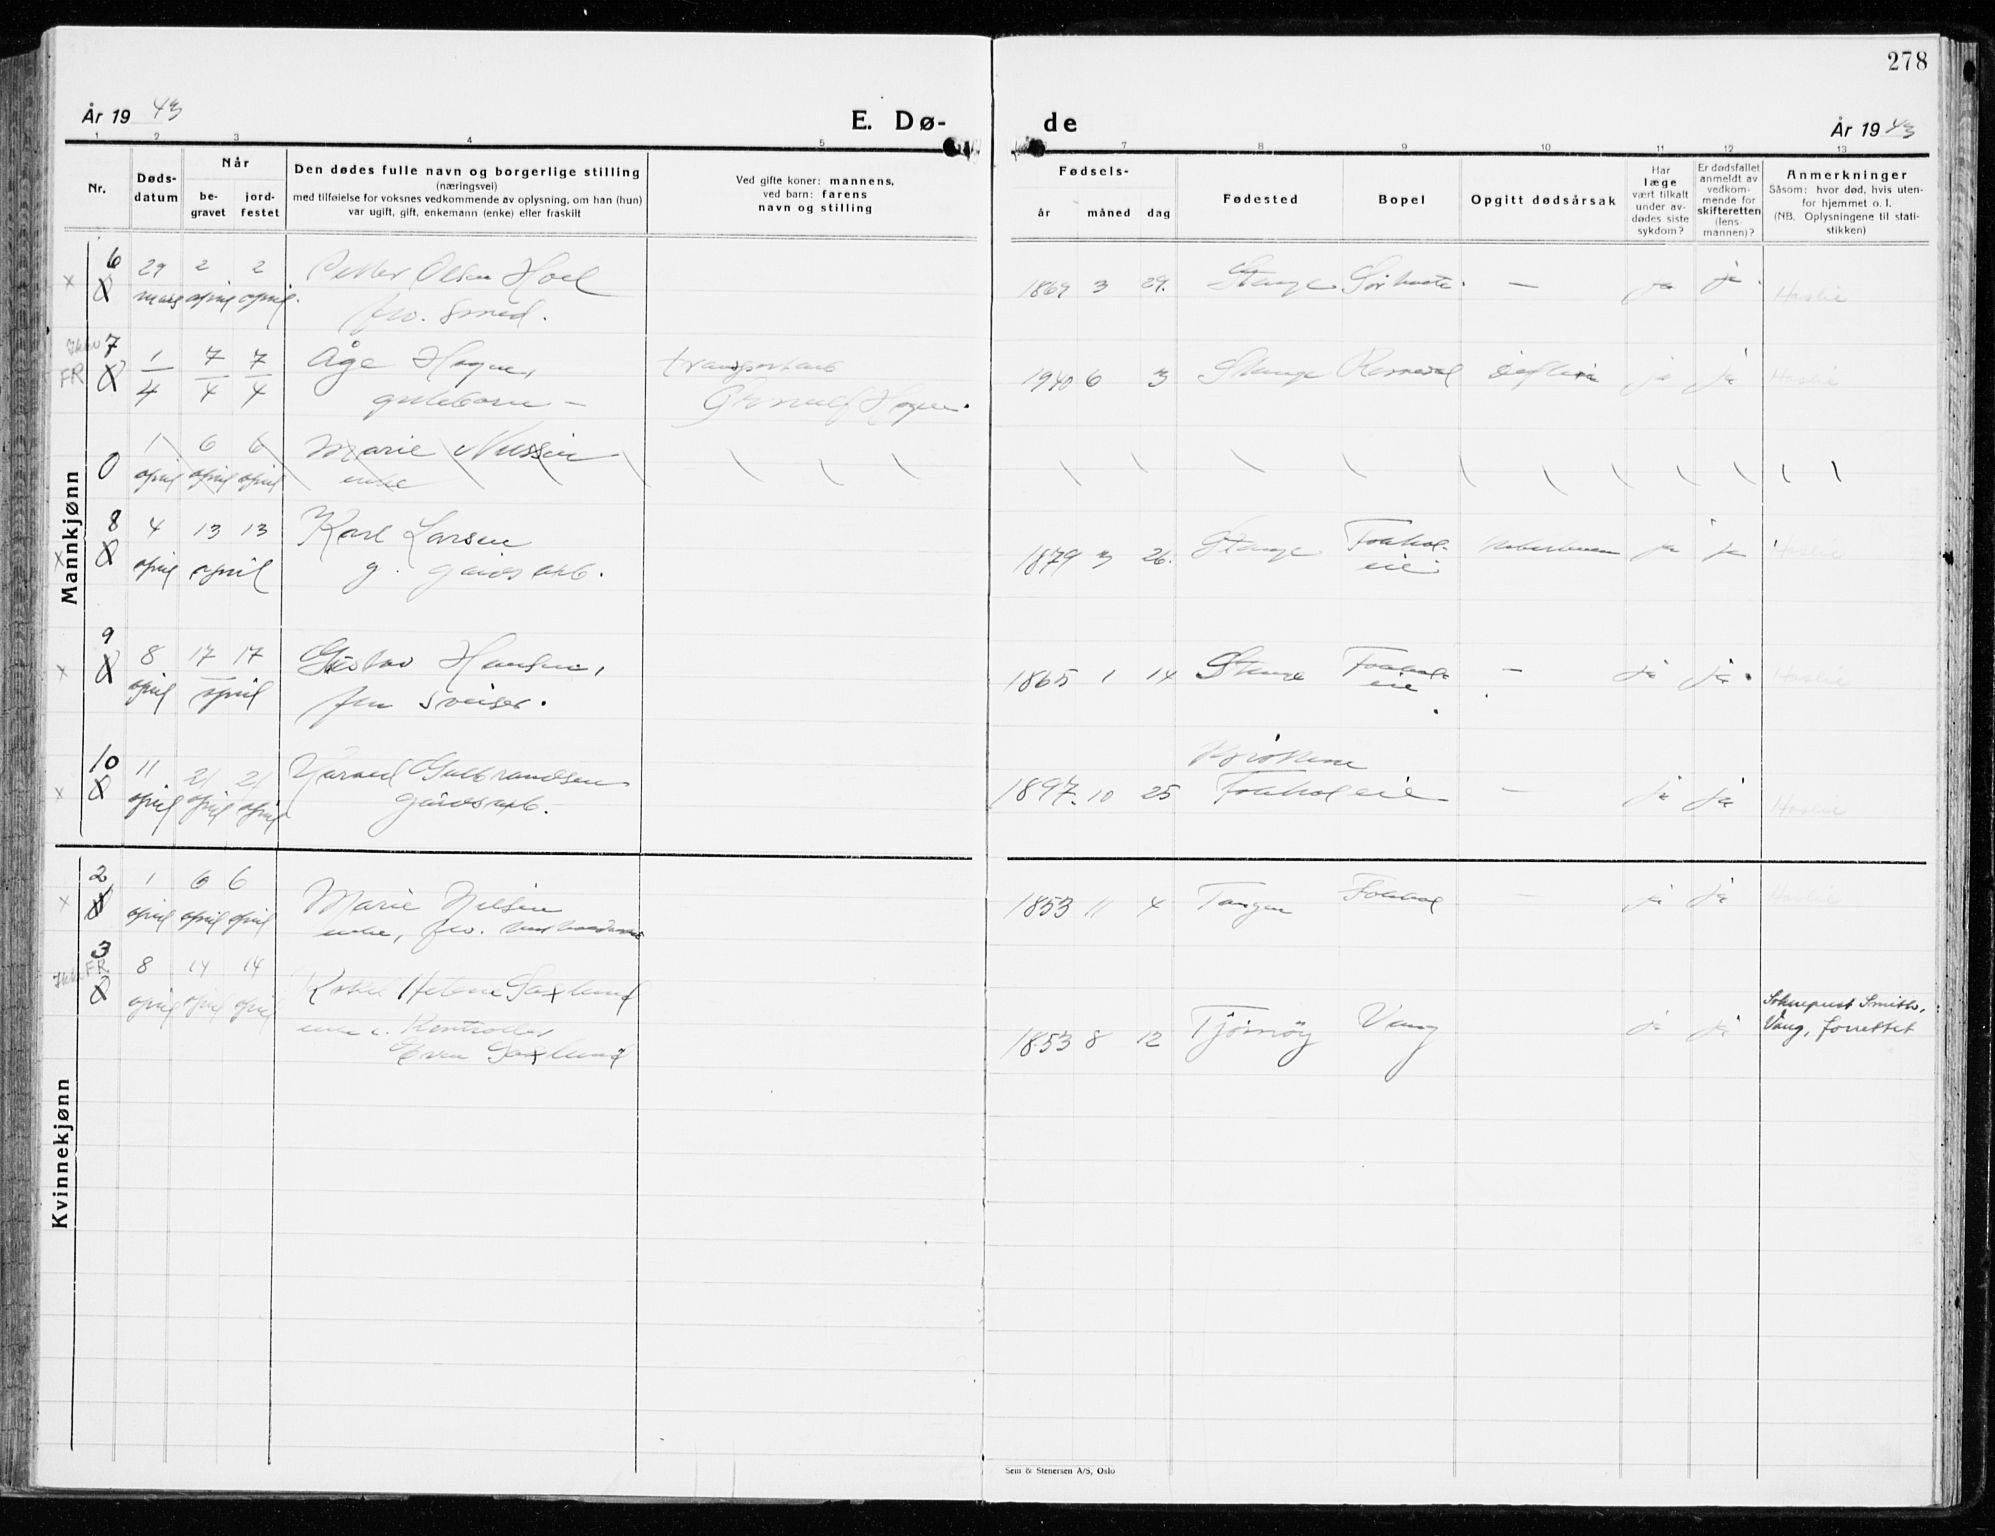 278
År 19 43
E. Dø-
de
År 19 43
1 2 3 4 5 7 8 9 10 11 12 13
Nr.
Døds-
datum
Når
be-
gravet
jord-
festet
Den dødes fulle navn og borgerlige stilling
(næringsvei)
med tilføielse for voksnes vedkommende av oplysning, om han (hun)
var ugift, gift, enkemann (enke) eller fraskilt
Ved gifte koner: mannens,
ved barn: farens
navn og stilling
Fødsels-
år måned dag
Fødested
Bopel
Opgitt dødsårsak
Har
læge
vært tilkalt
under av-
dødes siste
sykdom?
Er dødsfallet
anmeldt av
vedkom-
mende for
skifteretten
(lens-
mannen)?
Anmerkninger
Såsom: hvor død, hvis uten-
for hjemmet o. l.
(NB. Oplysningene til stati-
stikken)
Mannkjønn
6 29 2 2 Petter Olsen Hoel
mars april april
fhv. smed.
1869 3 29. Stange ja ja Haslie
Ikke FR
7 1/4 7/4 7/4 Åge Hagen,
gutebarn –
1940 6 3 Stange difteri ja ja Haslie
0 1 6 6 Marie Nilssen
april april april enke
8 4 13 13 Karl Larsen
april april g. gårdsarb.
1879 3 26. Stange Fokhol-
eie ja ja Haslie
9 8 17 17 Gustav Hansen,
april april fhv sveiser.
1865 1 14 Stange Fokhol-
eie – ja ja Haslie
10 11 21 21 Gulbrandsen
april april april gårdsarb.
1897. 10 25 Fokhol eie – ja ja Haslie
Kvinnekjønn
2 1 6 6 Marie Nilsen
april april april enke, fhv.
1853 11 4 Tangen Fokhol – ja ja Haslie
Ikke FR
3 8 14 14 Helene Saxlund
april april april enke e. Kontrollør
Even Saxlund
1853 8 12 Tjømøy Vang ja ja
Sokneprest Smith,
Vang, forrettet
Sem & Stenersen A/S, Oslo